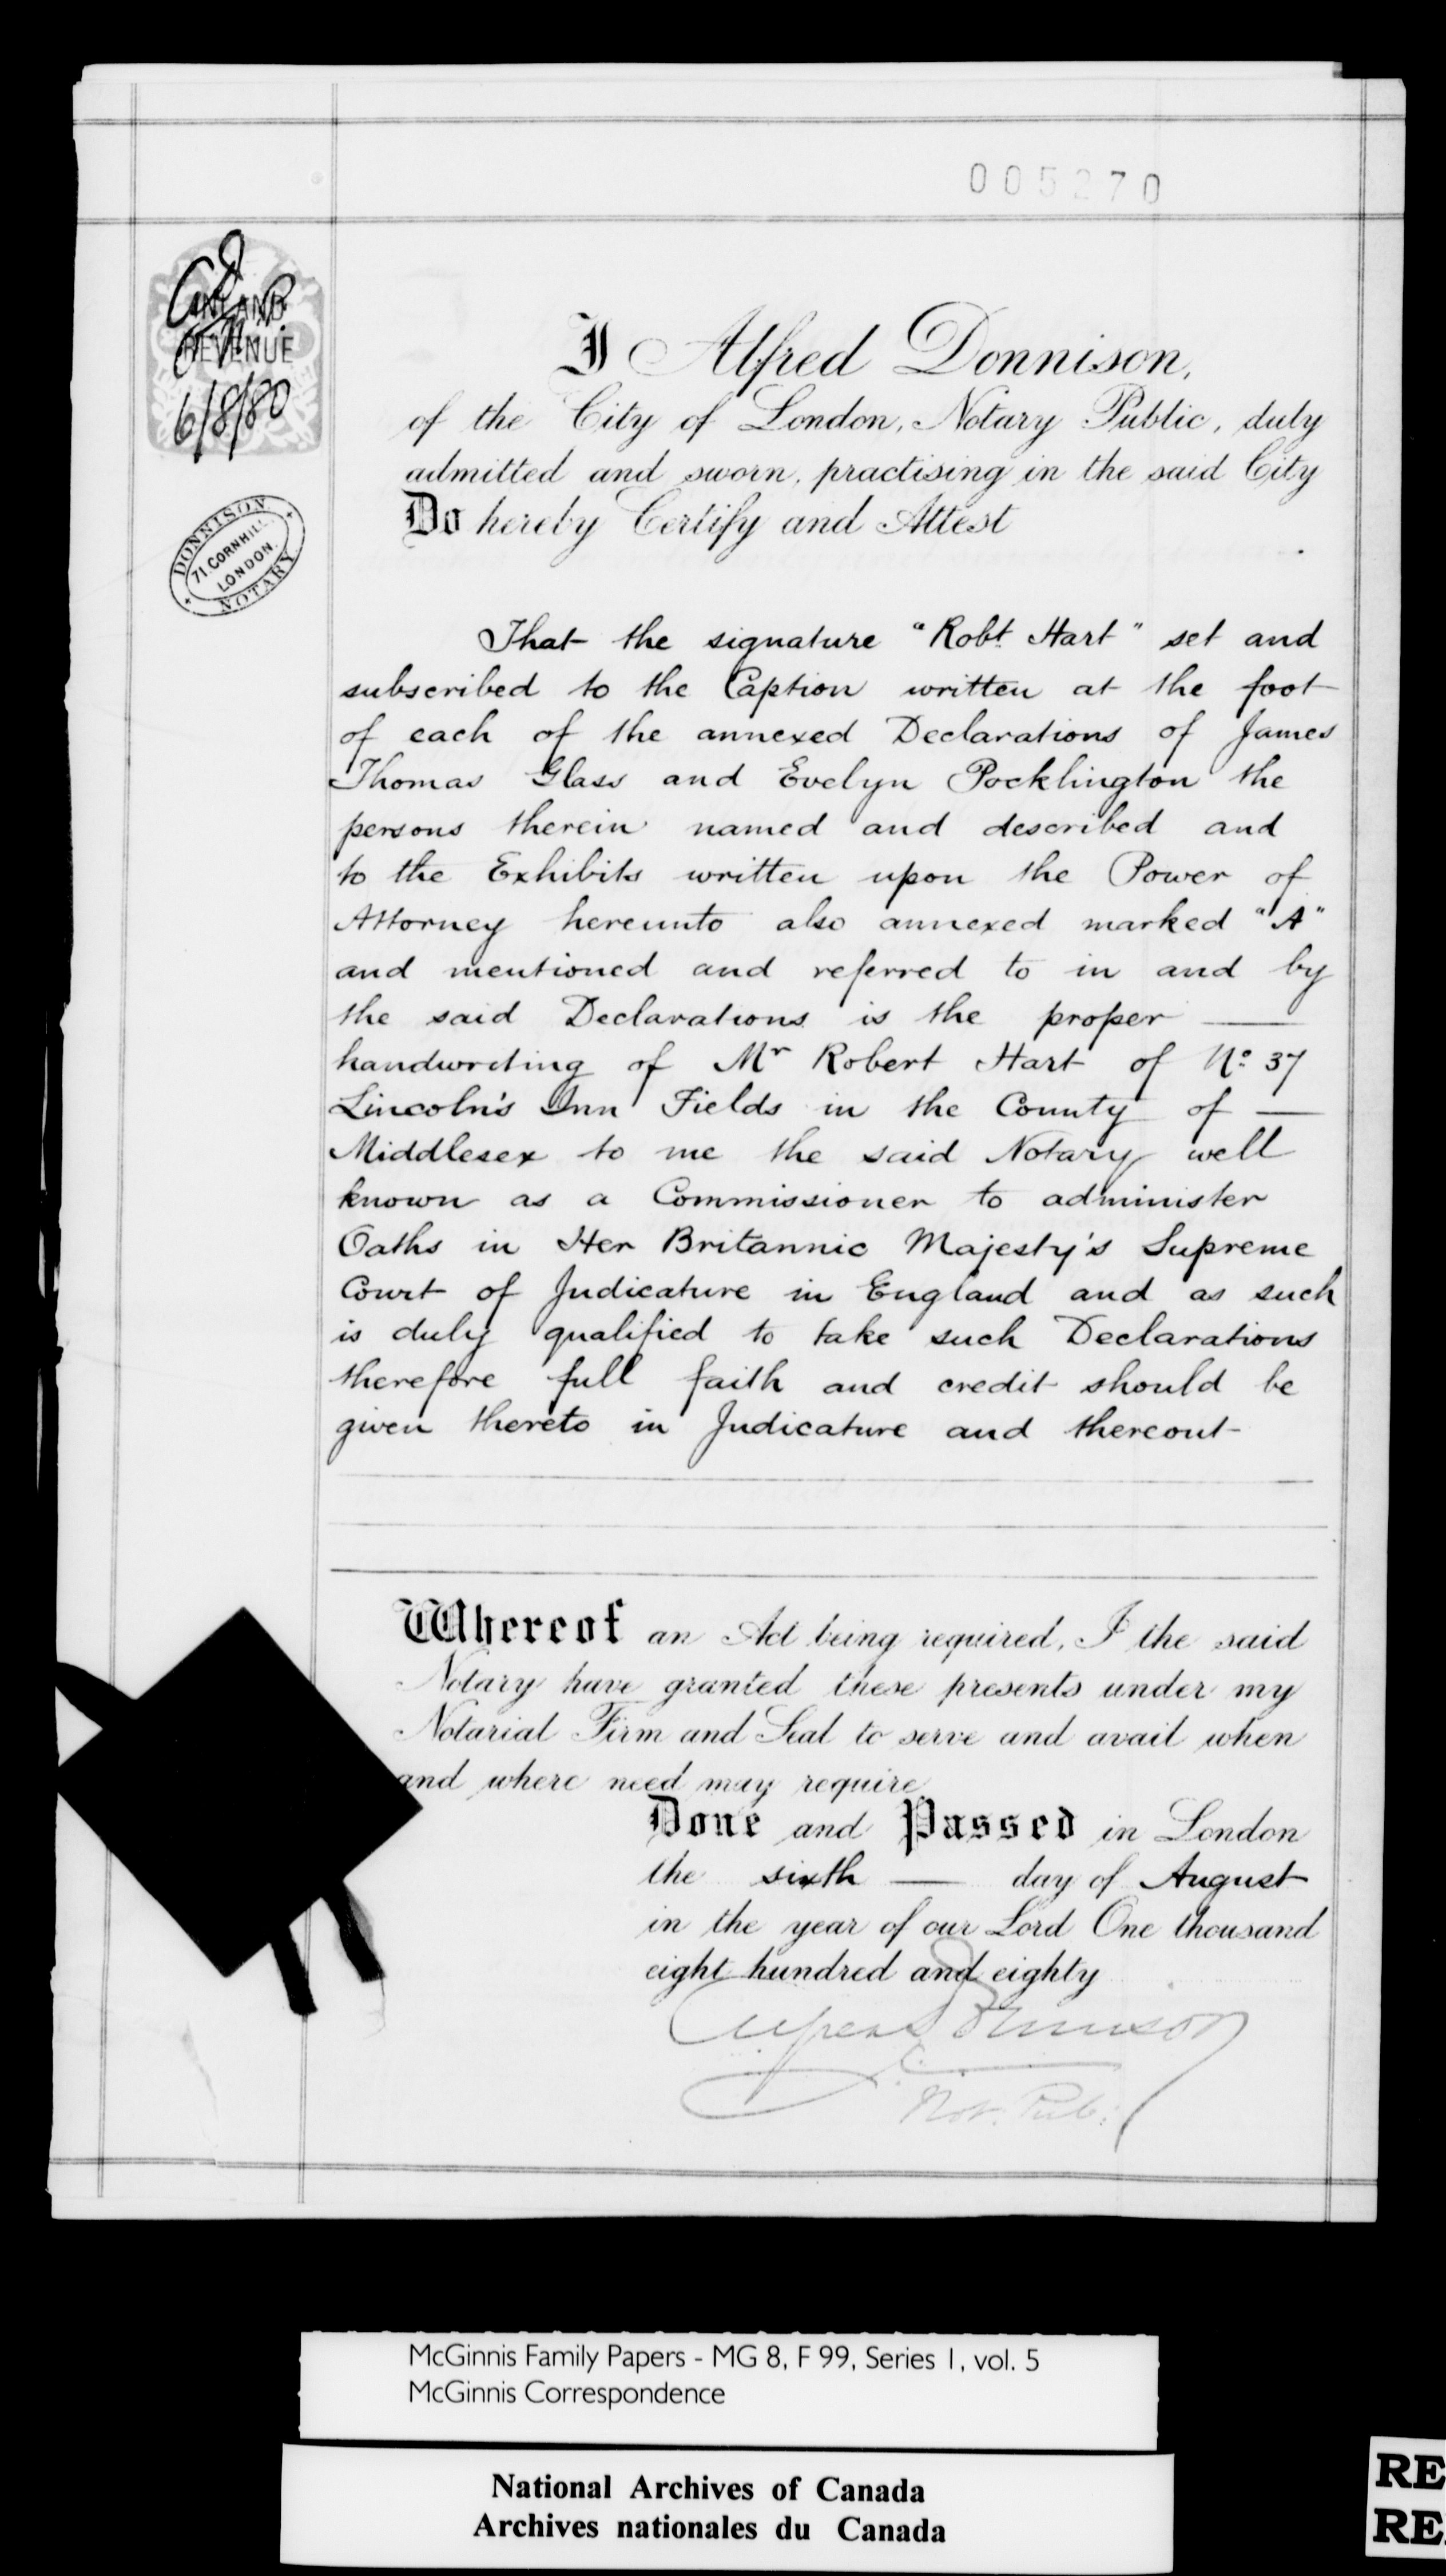 005270
INLAND
REVENUE
6/8/80
DONNISON
71, CORNHILL.
LONDON.
NOTARY
I Alfred Donnison,
of the City of London, Notary Public, duly
admitted and sworn, practising in the said City
Do hereby Certify and Attest
That the signature "Robt. Hart" set and
subscribed to the Caption written at the foot
of each of the annexed Declarations of James
Thomas Glass and Evelyn Pocklington the
persons therein named and described and
to the Exhibits written upon the Power of
Attorney hereunto also annexed marked "A"
and mentioned and referred to in and by
the said Declarations is the proper —
handwriting of Mr Robert Hart of No. 37
Lincoln's Inn Fields in the County of —
Middlesex to me the said Notary well
known as a Commissioner to administer
Oaths in Her Britannic Majesty's Supreme
Court of Judicature in England and as such
is duly qualified to take such Declarations
therefore full faith and credit should be
given thereto in Judicature and thereout
Whereof an Act being required, I the said
Notary have granted these presents under my
Notarial Firm and Seal to serve and avail when
and where need may require
Done and Passed in London
the sixth — day of August
in the year of our Lord One thousand
eight hundred and eighty
Alfred Donnison
Not. Pub:
McGinnis Family Papers - MG 8, F 99, Series 1, vol. 5
McGinnis Correspondence
National Archives of Canada
Archives nationales du Canada
RE
RE